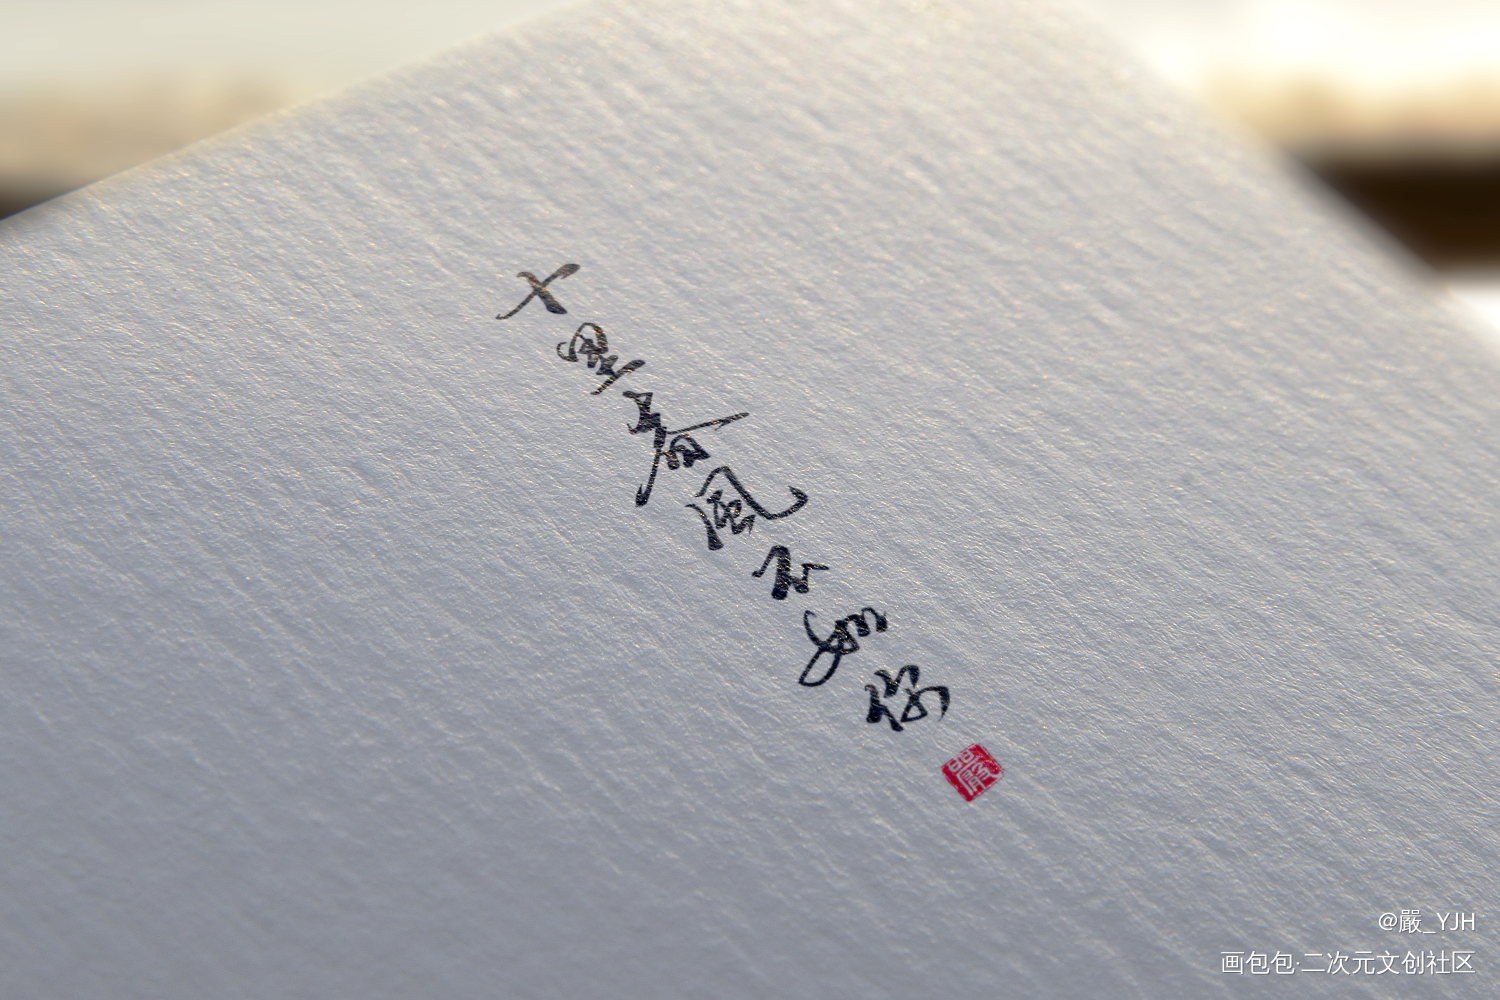 十里春风不如你
@嚴_YJH
画包包·二次元文创社区